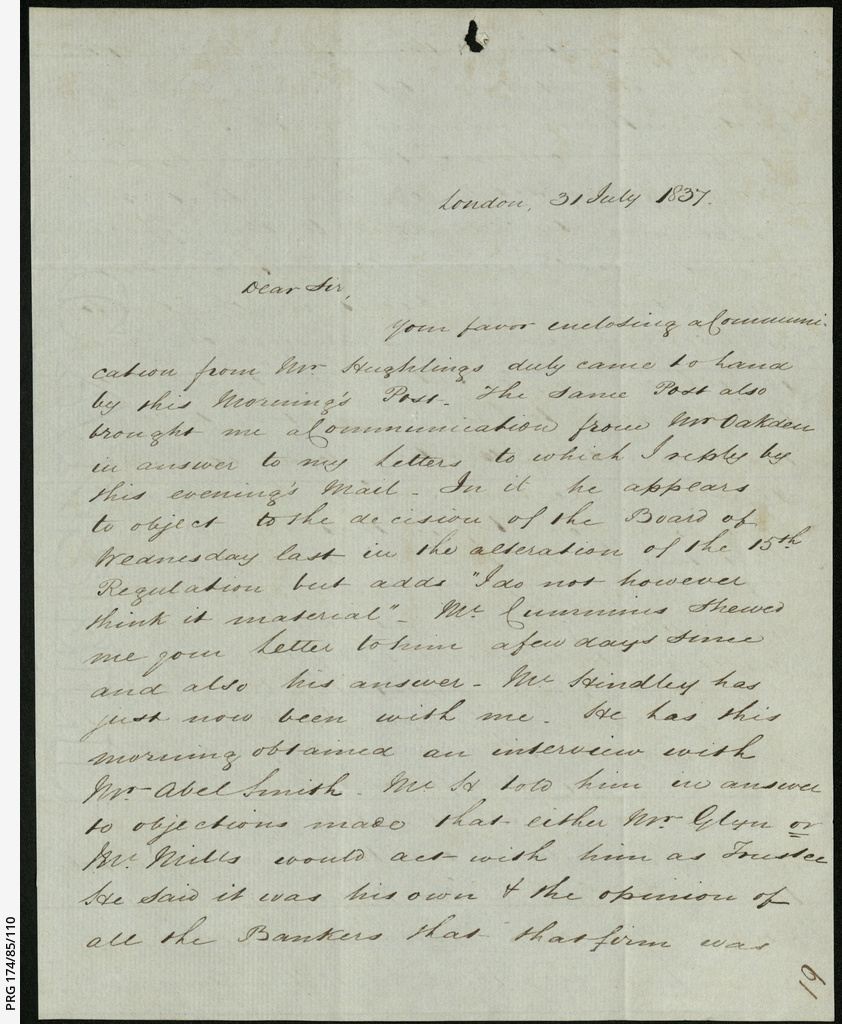 London, 31 July 1837.
Dear Sir,
Your favor enclosing a Communi-
cation from Mr. Hughlings duly came to hand
by this Morning's Post. The same Post also
brought me a Communication from Mr Oakden
in answer to my Letters to which I reply by
this evening's Mail. In it he appears
to object to the decision of the Board of
Wednesday last in the alteration of the 15th
Regulation but adds "I do not however
think it material". Mr. Cummins shewed
me your Letter to him a few days since
and also his answer. Mr. Hindley has
just now been with me. He has this
morning obtained an interview with
Mr. Abel Smith. Mr. H told him in answer
to objections made that either Mr. Glyn or
Mr. Mills would act with him as Trustee
He said it was his own & the opinion of
all the Bankers that that firm was
19
PRG 174/85/110